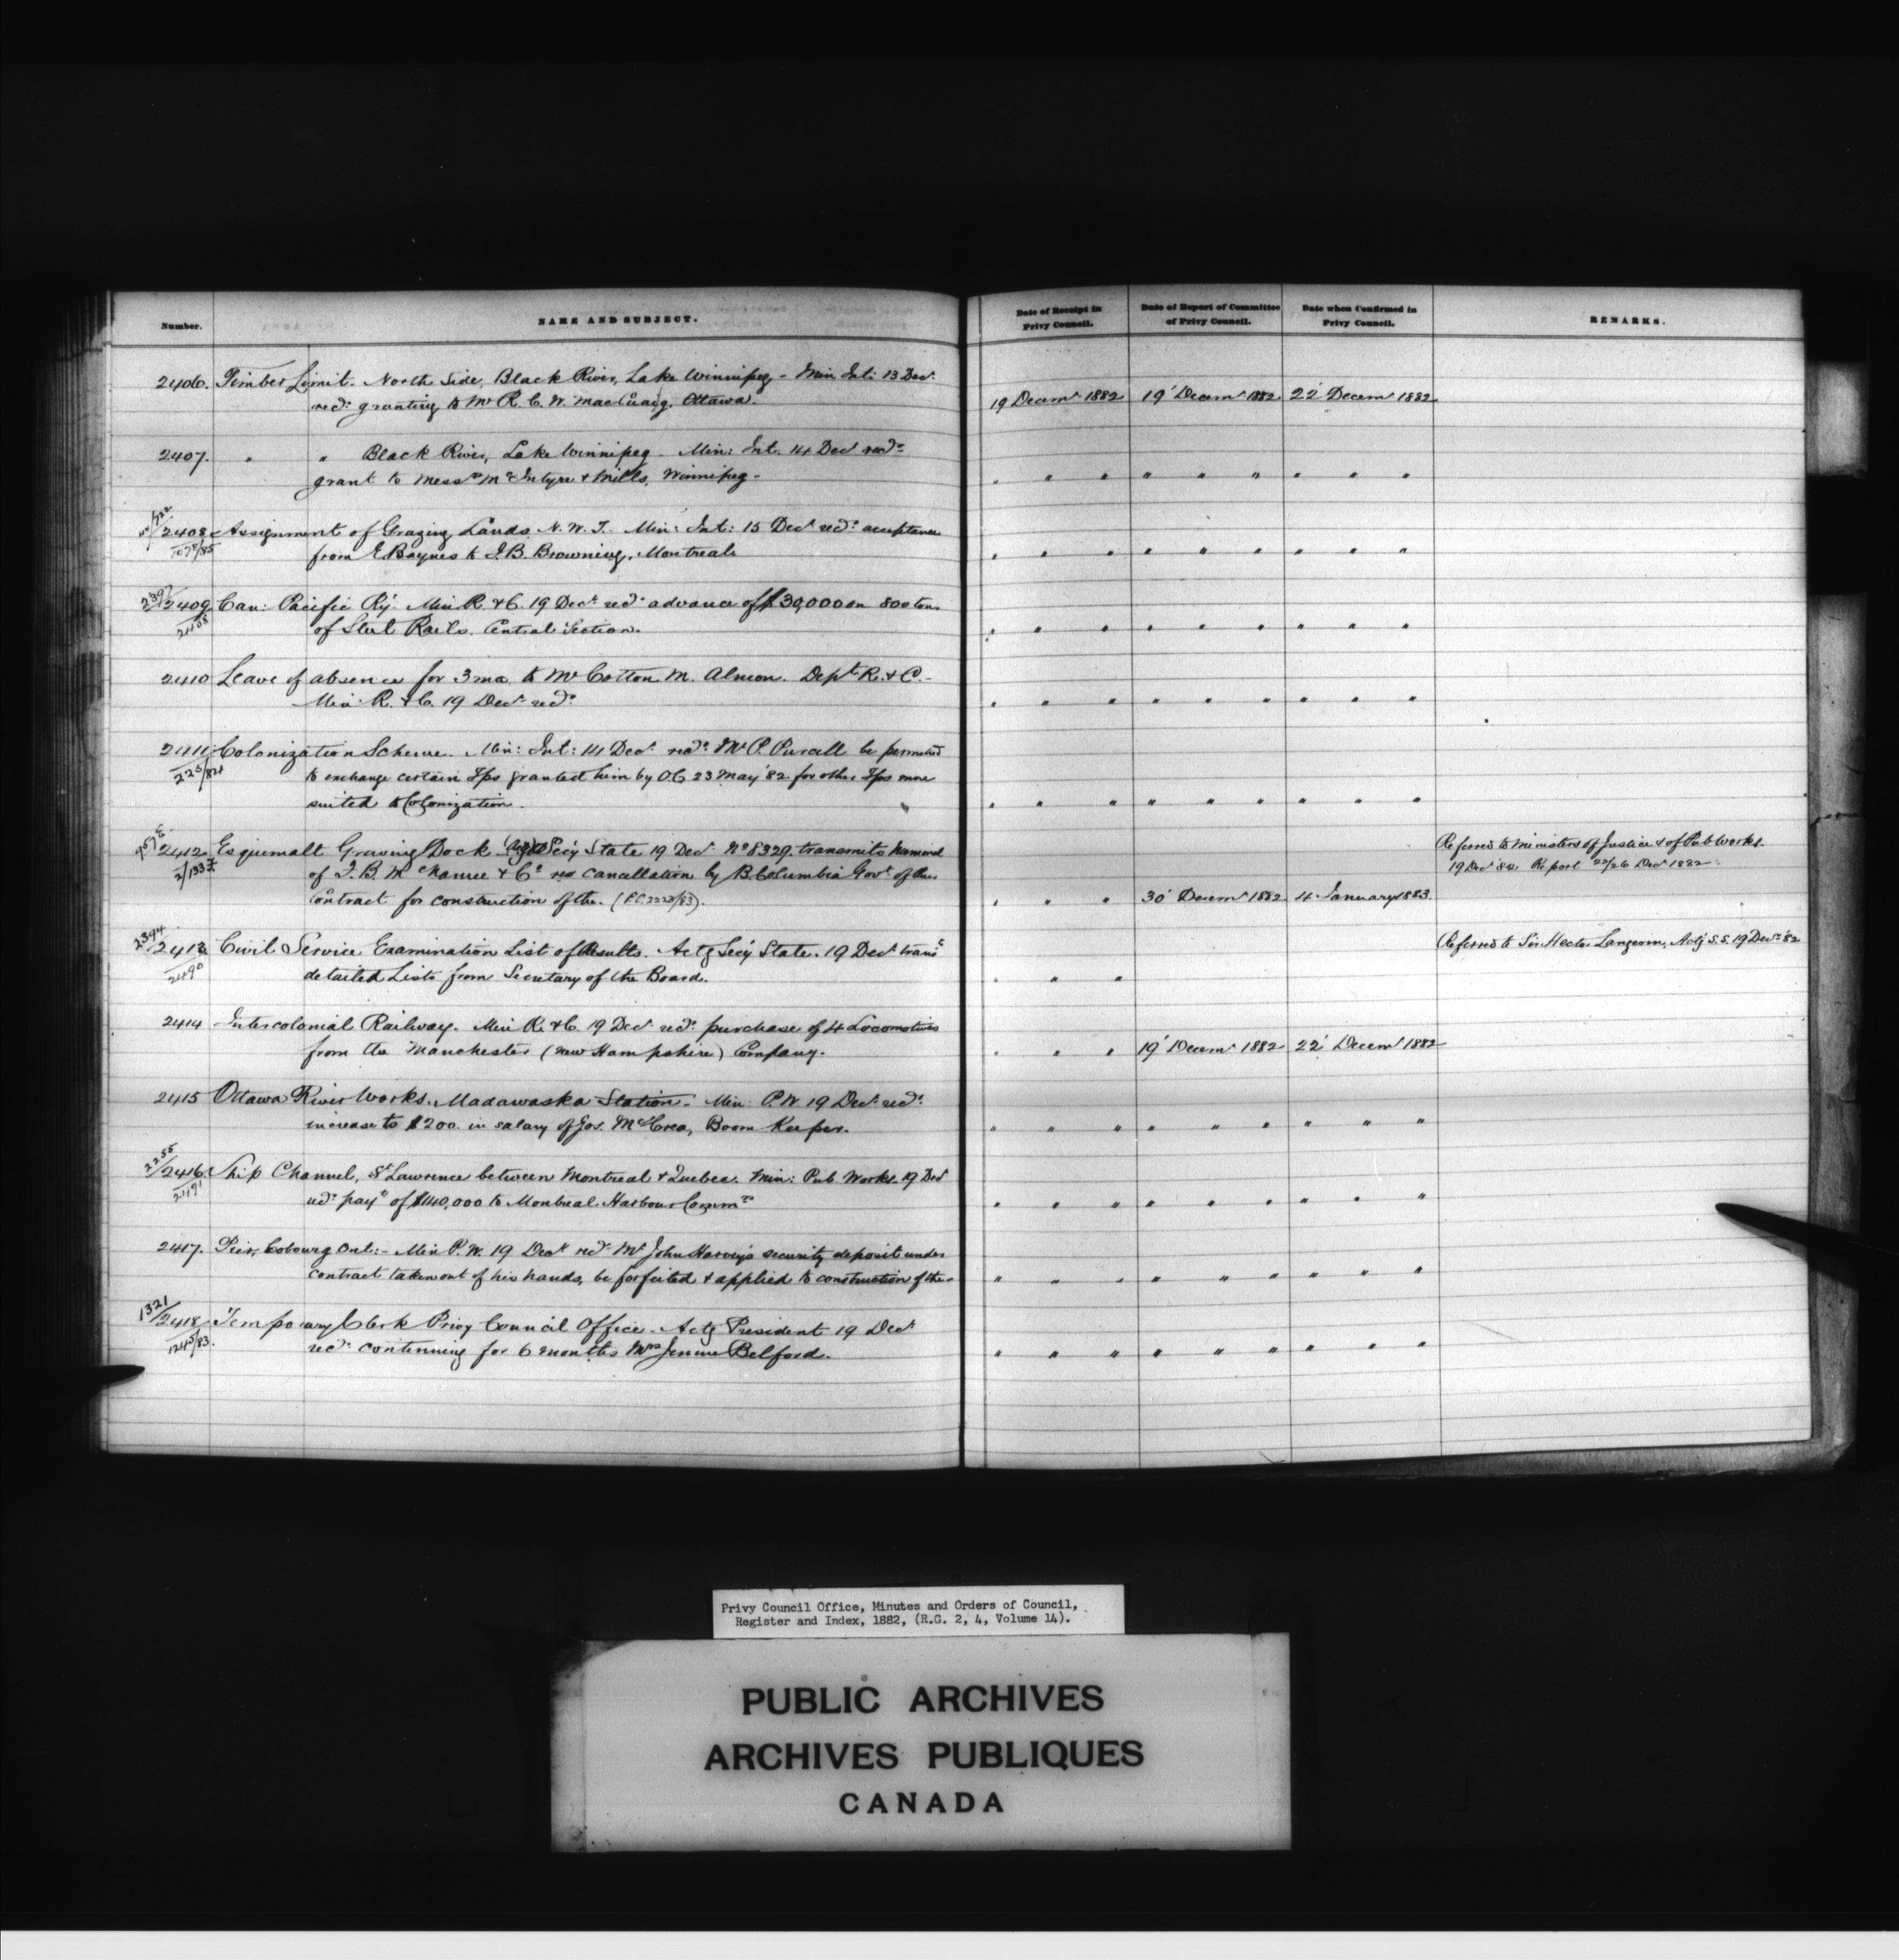 Number.
NAME AND SUBJECT.
Date of Receipt in Privy Council.
Date of Report of Committee of Privy Council.
Date when Confirmed in Privy Council.
REMARKS.
2406. Timber Limit. North Side, Black River, Lake Winnipeg - Min. Int: 13 Decr.
recd: granting to Mr R. C. W. MacCuaig, Ottawa. 19 Decemr 1882 19' Decemr 1882 22' Decemr 1882
2407. " " Black River, Lake Winnipeg - Min: Int. 14 Decr recd:
grant to Messrs McIntyre & Mills, Winnipeg - " " " " " " " " "
2408 Assignment of Grazing Lands N. W. T. Min: Int: 15 Decr recd: acceptance
1078/85 from E Baynes to J. B. Browning, Montreal. " " " " " " " " "
2409 Can: Pacific Ry. Min R. & C. 19 Decr recd: advance of $30,000 on 800 tons
of Steel Rails. Central Section. " " " " " " " " "
2410 Leave of absence for 3 mo. to Mr Cotton M. Almon. Dept R. & C. -
Min: R. & C. 19 Decr recd: " " " " " " " " "
2411 Colonization Scheme. Min: Int: 14 Decr recd: Mr P. Purcell be permitted
225/84 to exchange certain Tps granted him by OC 23 May '82 for other Tps more
suited to Colonization. " " " " " " " " "
2412 Esquimalt Graving Dock (Actg) Secy State 19 Decr No 8329. transmits Memorial Referred to Ministers of Justice & of Pub Works.
of F. B. McNamee & Co. re cancellation by B. Columbia Govt of their 19 Decr 82. Report 22/26 Decr 1882
Contract for construction of the. (P.C. 2223/83). " " " 30' Decemr 1882 4 January 1883.
2394
2413 Civil Service Examination List of Results. Actg Secy State. 19 Decr trans: Referred to Sir Hector Langevin, Actg S.S. 19 Decr '82
2490 detailed Lists from Secretary of the Board. " " "
2414 Intercolonial Railway. Min R. & C. 19 Decr recd: purchase of 4 Locomotives
from the Manchester (New Hampshire) Company. " " " 19' Decemr 1882 22' Decemr 1882
2415 Ottawa River Works. Madawaska Station. Min: P.W. 19 Decr recd:
increase to $200. in salary of Jos. McCrea, Boom Keeper. " " " " " " " " "
2255
2416. Ship Channel, St Lawrence between Montreal & Quebec. Min: Pub Works. 19 Decr
2491 recd: payt of $140,000 to Montreal Harbour Commrs " " " " " " " " "
2417. Pier, Cobourg Ont: - Min P.W. 19 Decr recd: Mr John Harvey's security deposit under
contract taken out of his hands, be forfeited & applied to construction of the - " " " " " " " " "
1321
2418 Temporary Clerk Privy Council Office. Actg President 19 Decr
1245/83. recd: continuing for 6 months Mrs Jennie Belford. " " " " " " " " "
Privy Council Office, Minutes and Orders of Council,
Register and Index, 1882, (R.G. 2, 4, Volume 14).
PUBLIC ARCHIVES
ARCHIVES PUBLIQUES
CANADA